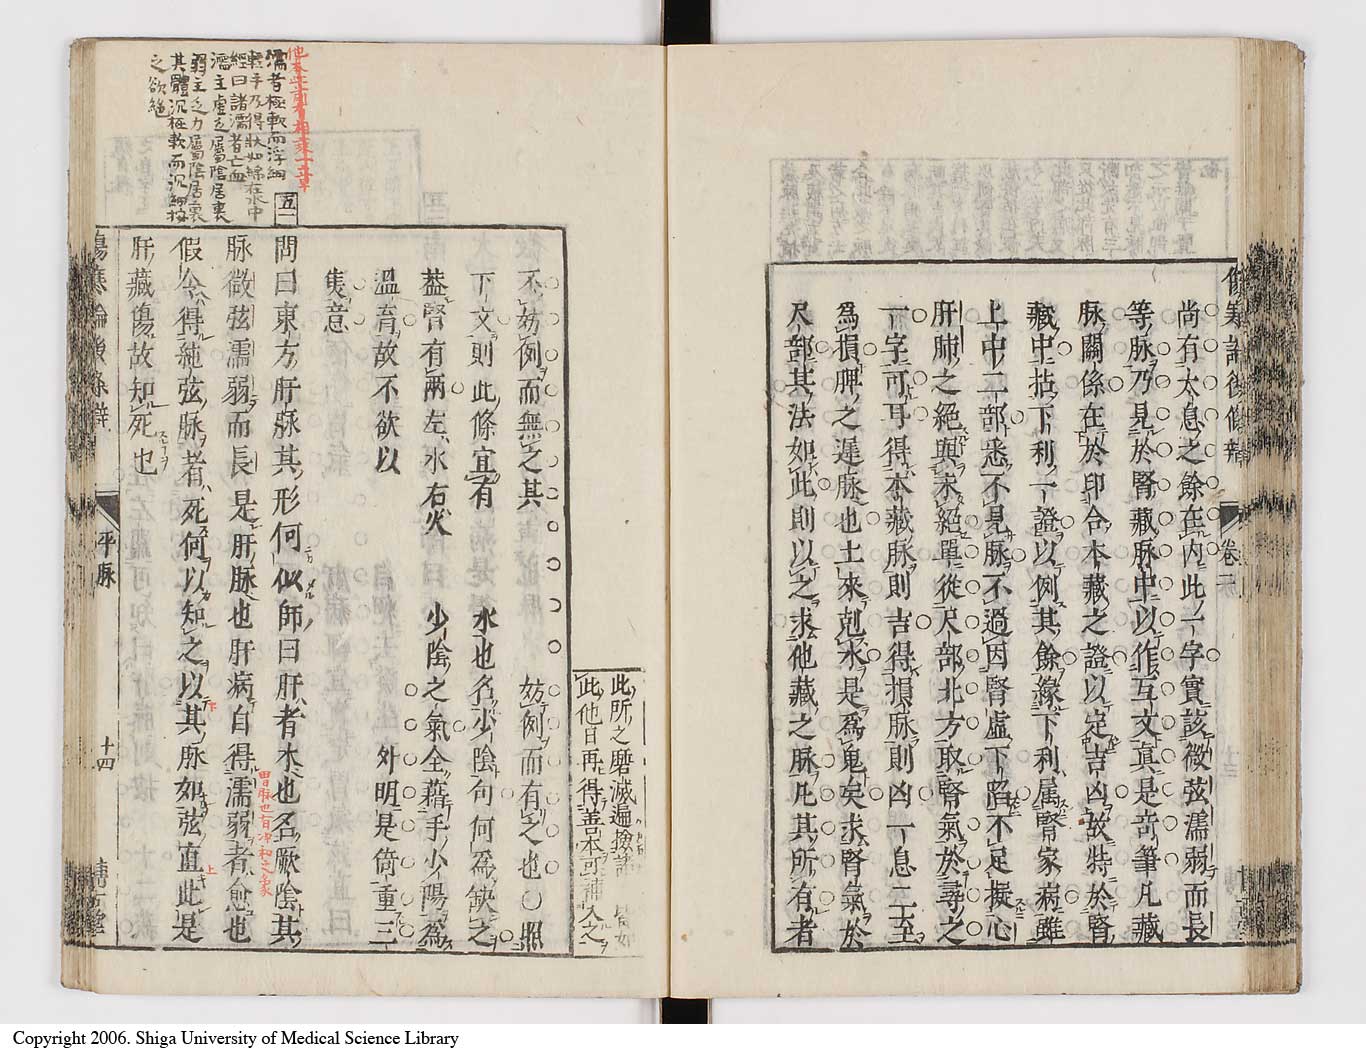 傷寒論後條辯
卷二
尚有太息之餘在內此一字實該微弦濡弱而長
等脉乃見於腎藏脉中以作互文眞是奇筆凡藏
脉關係在於印合本藏之證以定吉凶故特於腎
藏中拈下利一證以例其餘緣下利属腎家病雖
上中二部悉不見脉不過因腎虛下陷不足擬心
肝肺之絕與未絕單從尺部北方取腎氣於尋之
一字可耳得本藏脉則吉得損脉則凶一息二至
爲損脾之遲脉也土來剋水是爲鬼矣求腎氣於
尺部其法如此則以之求他藏之脉凡其所有者
此所之磨滅遍撿諸 皆如
此他日再得善本可補入之
不妨例而無之其 妨例而有之也○照
下文則此條宜有 水也名少陰句何爲缺之
蓋腎有兩左水右火 少陰之氣全藉手少陽爲
溫育故不欲以 外明是倚重三
隻意
問曰東方肝脉其形何似師曰肝者木也名厥陰其
脉微弦濡弱而長是肝脉也肝病自得濡弱者愈也
假令得純弦脉者死何以知之以其脉如弦直此是
肝藏傷故知死也
五一
濡者極軟而浮細
輕手乃得狀如綿在水中
經曰諸濡者亡血
濡主虛乏屬陰居裏
弱主乏力屬陰居裏
其體沉極軟而沉細按
之欲絕
胃脉也有冲和之象
下
上
傷寒論後條辯
平脉
十四